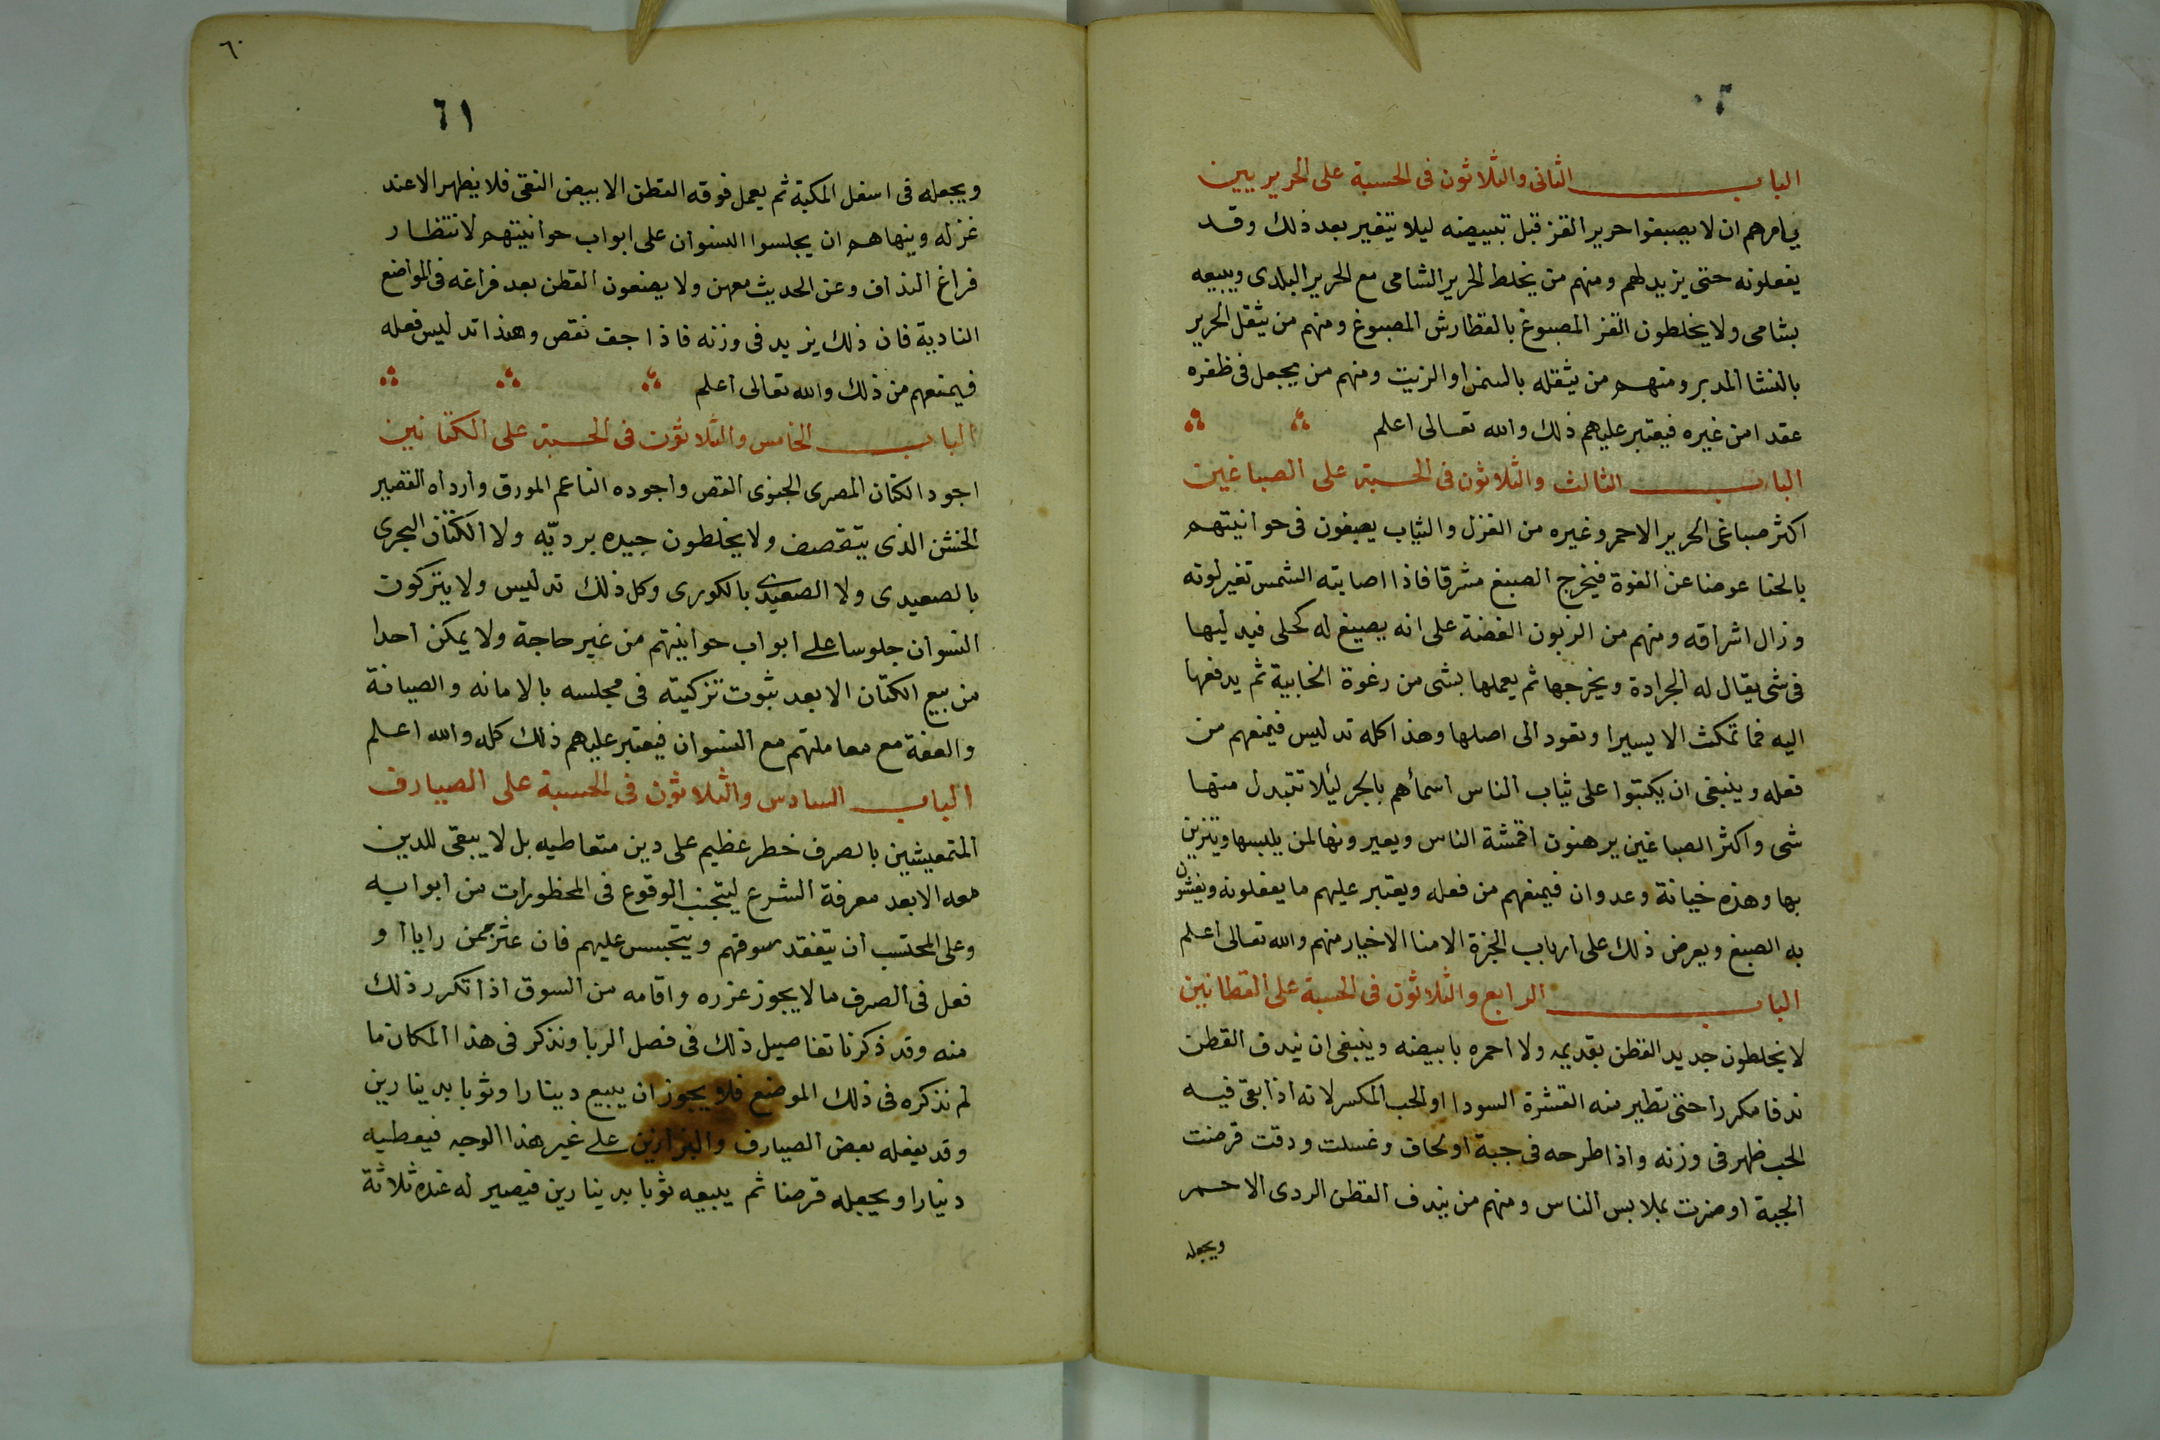 الباب الثانى والثلاثون فى الحسبة على الحريريين
يامرهم ان لا يصبغوا حرير القز قبل تبييضه ليلا يتغير بعد ذلك وقد
يفعلونه حتى يزيد لهم ومنهم من يخلط الحرير الشامى مع الحرير البلدى ويبيعه
بشامى ولا يخلطون القز المصبوغ بالقطارش المصبوغ ومنهم من يثقل الحرير
بالنشا المدبر ومنهم من يثقله بالسمن او الزيت ومنهم من يجعل فى ظفره
عقدا من غيره فيعتبر عليهم ذلك والله تعالى اعلم
الباب الثالث والثلاثون فى الحسبة على الصباغين
اكثر صباغى الحرير الاحمر وغيره من الغزل والثياب يصبغون فى حوانيتهم
بالحنا عوضا عن الفوة فيخرج الصبغ مشرقا فاذا اصابته الشمس تغير لونه
وزال اشراقه ومنهم من الزبون الفضة على انه يصبغ له كحلى فيدليها
فى شى يقال له الجرادة ويخرجها ثم يعملها بشى من رغوة الخابية ثم يدفعها
اليه فما تمكث الا يسيرا وتعود الى اصلها وهذا كله تدليس فيمنعهم من
فعله وينبغى ان يكتبوا على ثياب الناس اسمائهم بالحبر ليلا تتبدل منها
شى واكثر الصباغين يرهنون اقمشة الناس ويعيرونها لمن يلبسها ويتزين
بها وهذه خيانة وعدوان فيمنعهم من فعله ويعتبر عليهم ما يفعلونه ويغشون
به الصبغ ويعرض ذلك على ارباب الخبرة الامنا الاخيار منهم والله تعالى اعلم
الباب الرابع والثلاثون فى الحسبة على القطانين
لا يخلطون جديد القطن بقديمه ولا احمره بابيضه وينبغى ان يندف القطن
ندفا مكررا حتى تطير منه القشرة السودا او الحب المكسر لانه اذا بقى فيه
الحب ظهر فى وزنه واذا طرحه فى جبة او لحاف وغسلت ودقت قرضت
الجبة او ضرت بملابس الناس ومنهم من يندف القطن الردى الاحمر
ويجعله
٦٠
٦١
ويجعله فى اسفل المكبة ثم يعمل فوقه القطن الابيض النقى فلا يظهر الا عند
غزله وينهاهم ان يجلسوا النسوان على ابواب حوانيتهم لانتظار
فراغ النداف وعن الحديث معهن ولا يضعون القطن بعد فراغه فى المواضع
النادية فان ذلك يزيد فى وزنه فاذا جف نقص وهذا تدليس فعله
فيمنعهم من ذلك والله تعالى اعلم
الباب الخامس والثلاثون فى الحسبة على الكتانين
اجود الكتان المصرى الجيزى الغض واجوده الناعم المورق وارداه القصير
الخشن الذى يتقصف ولا يخلطون جيده برديه ولا الكتان البحرى
بالصعيدى ولا الصعيدى بالكورى وكل ذلك تدليس ولا يتركون
النسوان جلوسا على ابواب حوانيتهم من غير حاجة ولا يمكن احدا
من بيع الكتان الا بعد ثبوت تزكيته فى مجلسه بالامانه والصيانة
والعفة مع معاملتهم مع النسوان فيعتبر عليهم ذلك كله والله اعلم
الباب السادس والثلاثون فى الحسبة على الصيارف
المتعيشين بالصرف خطر عظيم على دين متعاطيه بل لا يبقى للدين
معه الا بعد معرفة الشرع ليتجنب الوقوع فى المحظورات من ابوابه
وعلى المحتسب ان يتفقد سوقهم ويتجسس عليهم فان عثر بمن رابا او
فعل فى الصرف ما لا يجوز عزره واقامه من السوق اذا تكرر ذلك
منه وقد ذكرنا تفاصيل ذلك فى فصل الربا ونذكر فى هذا المكان ما
لم نذكره فى ذلك الموضع فلا يجوز ان يبيع دينارا وثوبا بدينارين
وقد يفعله بعض الصيارف والبزازين على غير هذا الوجه فيعطيه
دينارا ويجعله قرضا ثم يبيعه ثوبا بدينارين فيصير له عنده ثلاثة